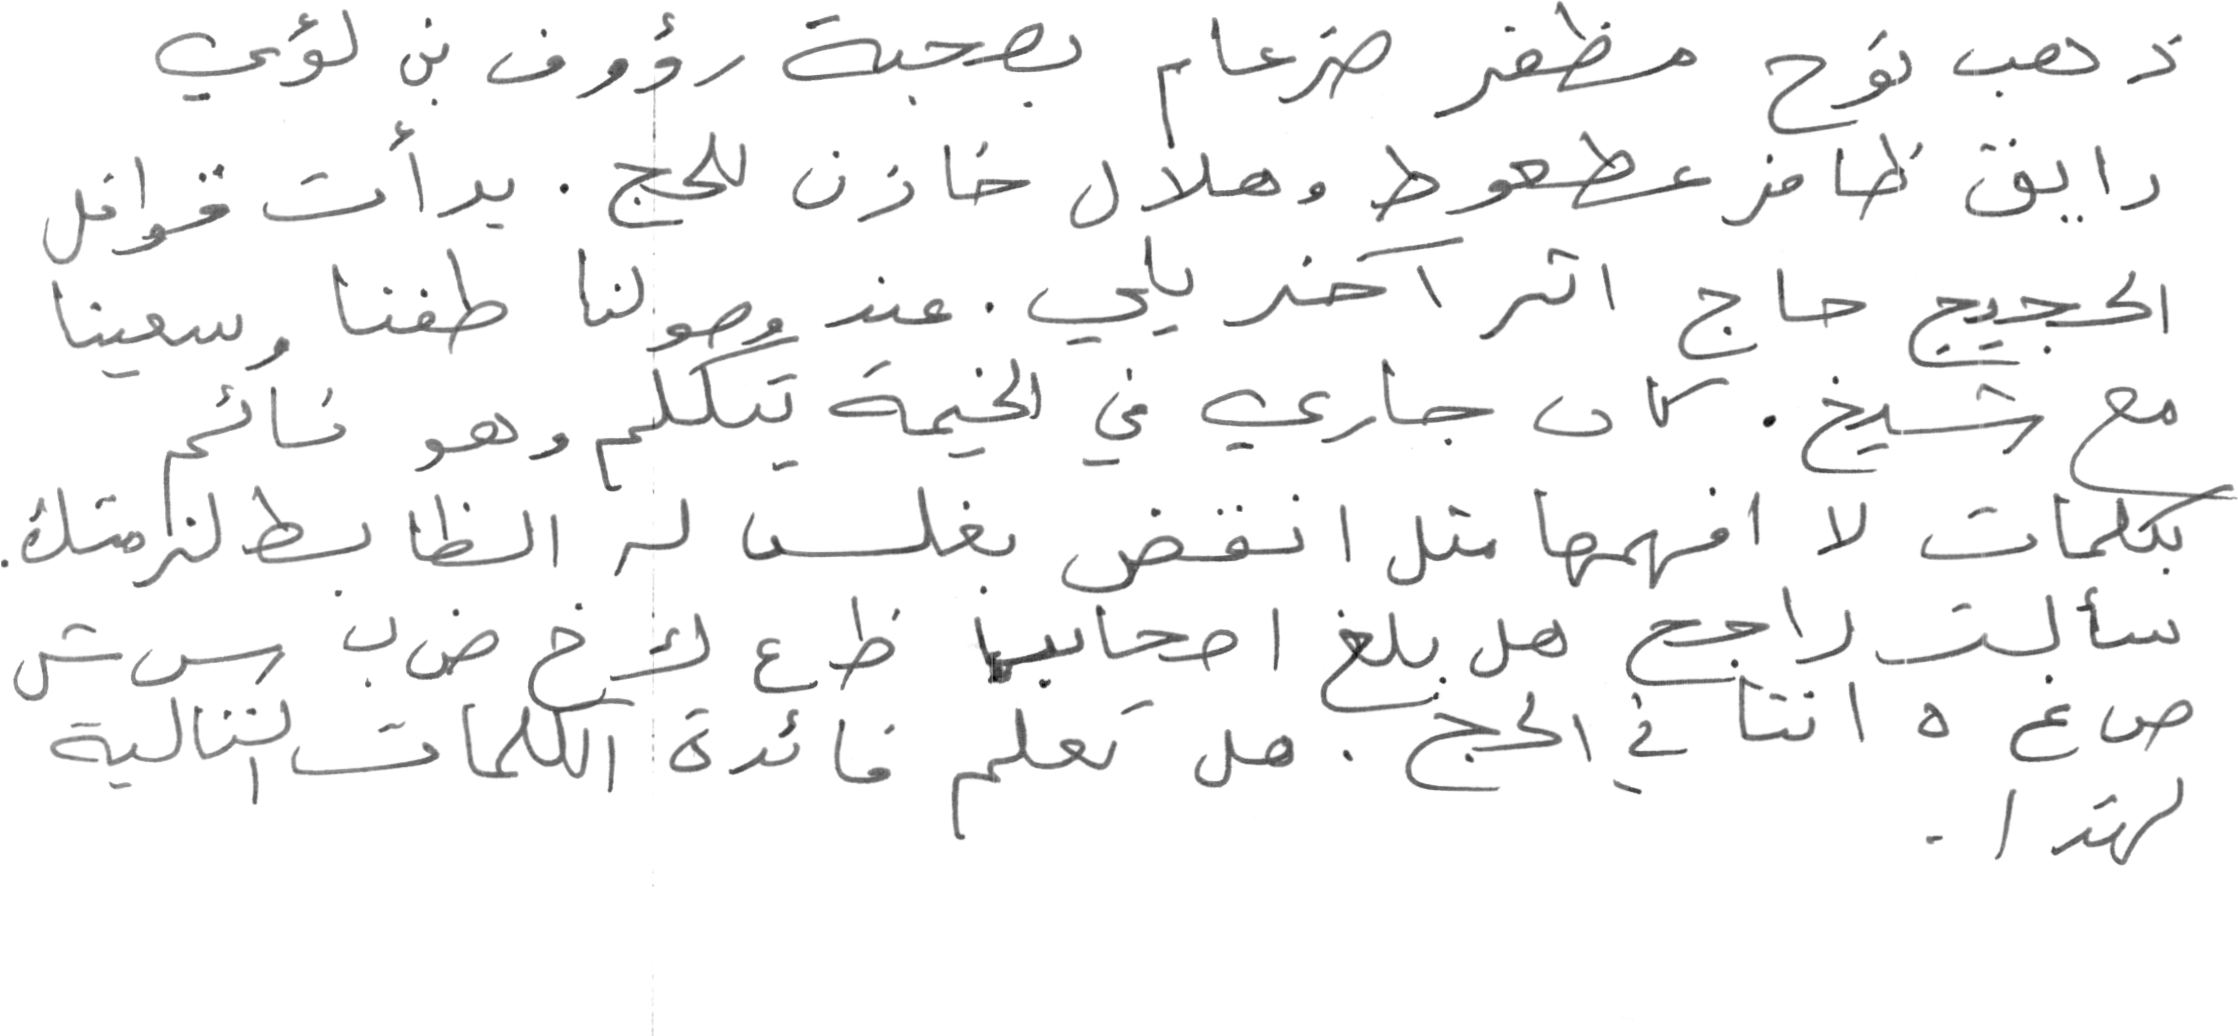 ذهب نوح مظفر ضرغام بصحبة رؤوف بن لؤي
رايق ظافر عطعوط وهلال خازن للحج . بدأت قوافل
الحجيج حاج اثر آخر يلي . عند وصولنا طفنا وسعينا
مع شيخ . كان جاري في الخيمة يتكلم وهو نائم
بكلمات لا افهمها مثل انقض بغلس لـ الظابط لنزمتك .
سألت راجح هل بلغ اصحابنا ظ ع ك خ ض ب س ش
ص غ ه اثنا في الحج . هل تعلم فائدة الكلمات التالية
لهذا .